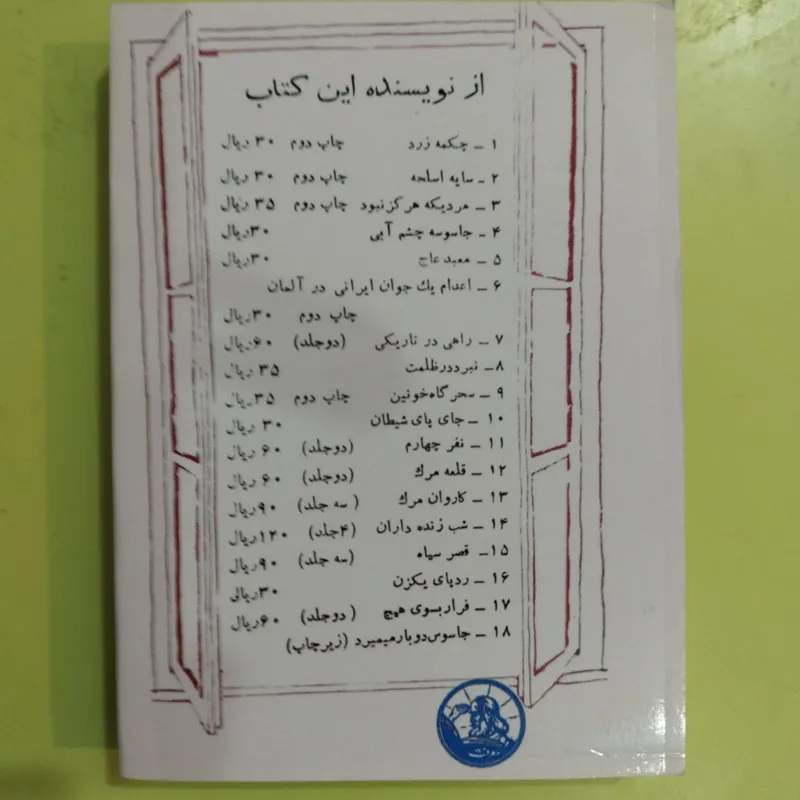 از نویسنده این کتاب
۱ ـ چکمه زرد چاپ دوم ۳۰ ریال
۲ ـ سایه اسلحه چاپ دوم ۳۰ ریال
۳ ـ مردیکه هرگز نبود چاپ دوم ۳۵ ریال
۴ ـ جاسوسه چشم آبی ۳۰ ریال
۵ ـ معبد عاج ۳۰ ریال
۶ ـ اعدام یك جوان ایرانی در آلمان
چاپ دوم ۳۰ ریال
۷ ـ راهی در تاریکی (دوجلد) ۶۰ ریال
۸ـ نبرد در ظلمت ۳۵ ریال
۹ ـ سحرگاه خونین چاپ دوم ۳۵ ریال
۱۰ ـ جای پای شیطان ۳۰ ریال
۱۱ ـ نفر چهارم (دوجلد) ۶۰ ریال
۱۲ ـ قلعه مرك (دوجلد) ۶۰ ریال
۱۳ ـ کاروان مرك (سه جلد) ۹۰ ریال
۱۴ ـ شب زنده داران (۴جلد) ۱۲۰ ریال
۱۵ـ قصر سیاه (سه جلد) ۹۰ ریال
۱۶ ـ ردپای یکزن ۳۰ ریال
۱۷ ـ فرار بسوی هیچ (دوجلد) ۶۰ ریال
۱۸ ـ جاسوس دوبار میمیرد (زیر چاپ)